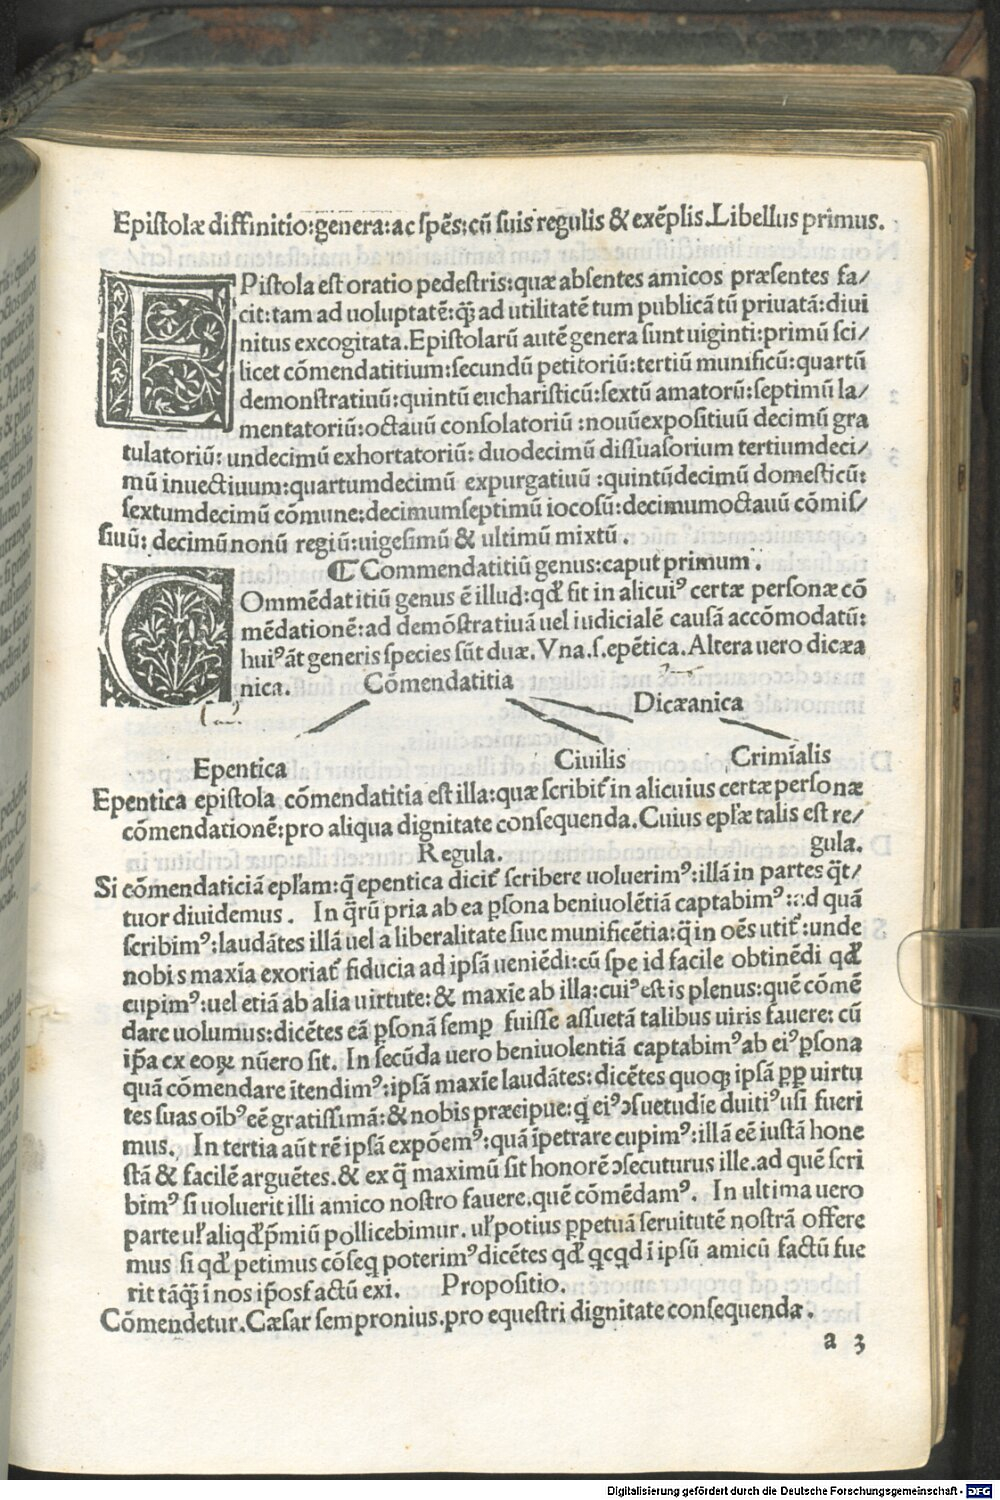 Epistolæ diffinitio:genera:ac spēs:cū suis regulis & exēplis.Libellus primus.
EPistola est oratio pedestris:quæ absentes amicos præsentes fa/
cit:tam ad uoluptatē:q̄ ad utilitatē tum publicā tū priuatā:diui
nitus excogitata.Epistolarū autē genera sunt uiginti:primū sci/
licet cōmendatitium:secundū petitoriū:tertiū munificū:quartū
demonstratiuū:quintū eucharisticū:sextū amatoriū:septimū la/
mentatoriū:octauū consolatoriū :nouūexpositiuū decimū gra
tulatoriū: undecimū exhortatoriū: duodecimū dissuasorium tertiumdeci/
mū inuectiuum:quartumdecimū expurgatiuū :quintūdecimū domesticū:
sextumdecimū cōmune:decimumseptimū iocosū:decimumoctauū cōmis/
siuū: decimūnonū regiū:uigesimū & ultimū mixtū.
¶ Commendatitiū genus:caput primum.
COmmēdatitiū genus ē illud:qd̄ fit in alicuiꝰ certæ personæ cō
mēdationē:ad demōstratiuā uel iudicialē causā accōmodatū:
huiꝰ āt generis species sūt duæ. Vna.s.epētica.Altera uero dicæa
nica.
Cōmendatitia
Dicæanica
Epentica Ciuilis Crimīalis
Epentica epistola cōmendatitia est illa:quæ scribit᷑ in alicuius certæ personæ
cōmendationē:pro aliqua dignitate consequenda.Cuius epl̄æ talis est re/
Regula. gula.
Si cōmendaticiā epl̄am:q̄ epentica dicit᷑ scribere uoluerimꝰ:illā in partes q̄t/
tuor diuidemus. In q̄rū pria ab ea ꝑsona beniuolētiā captabimꝰ:ad quā
scribimꝰ:laudātes illā uel a liberalitate siue munificētia:q̄ in oēs utit᷑:unde
nobis maxīa exoriat᷑ fiducia ad ipsā ueniēdi:cū spe id facile obtinēdi qd̄
cupimꝰ:uel etiā ab alia uirtute:& maxīe ab illa:cuiꝰ est is plenus:quē cōmē
dare uolumus:dicētes eā ꝑsonā semꝑ fuisse assuetā talibus uiris fauere: cū
ip̄a ex eoꝝ nūero sit. In secūda uero beniuolentiā captabimꝰ ab eiꝰ ꝑsona
quā cōmendare ītendimꝰ:ipsā maxīe laudātes:dicētes quoqꝫ ipsā ꝑꝑ uirtu
tes suas oībꝰ eē gratissimā:& nobis præcipue:q̄ eiꝰ ꝯsuetudīe duitiꝰ usi fueri
mus. In tertia aūt rē ipsā expōemꝰ:quā īpetrare cupimꝰ:illā eē iustā hone
stā & facilē arguētes.& ex q̄ maximū sit honorē ꝯsecuturus ille.ad quē scri
bimꝰ si uoluerit illi amico nostro fauere.quē cōmēdamꝰ. In ultima uero
parte ul̄ aliqd̄ p̄miū pollicebimur. ul̄ potius ꝑpetuā seruitutē nostrā offere
mus si qd̄ petimus cōseq̄ poterimꝰ dicētes qd̄ qcqd ī ipsū amicū factū fue
rit tāq̄ ī nos ip̄os factū exi. Propositio.
Cōmendetur.Cæsar sempronius.pro equestri dignitate consequenda.
a 3
Digitalisierung gefördert durch die Deutsche Forschungsgemeinschaft - DFG